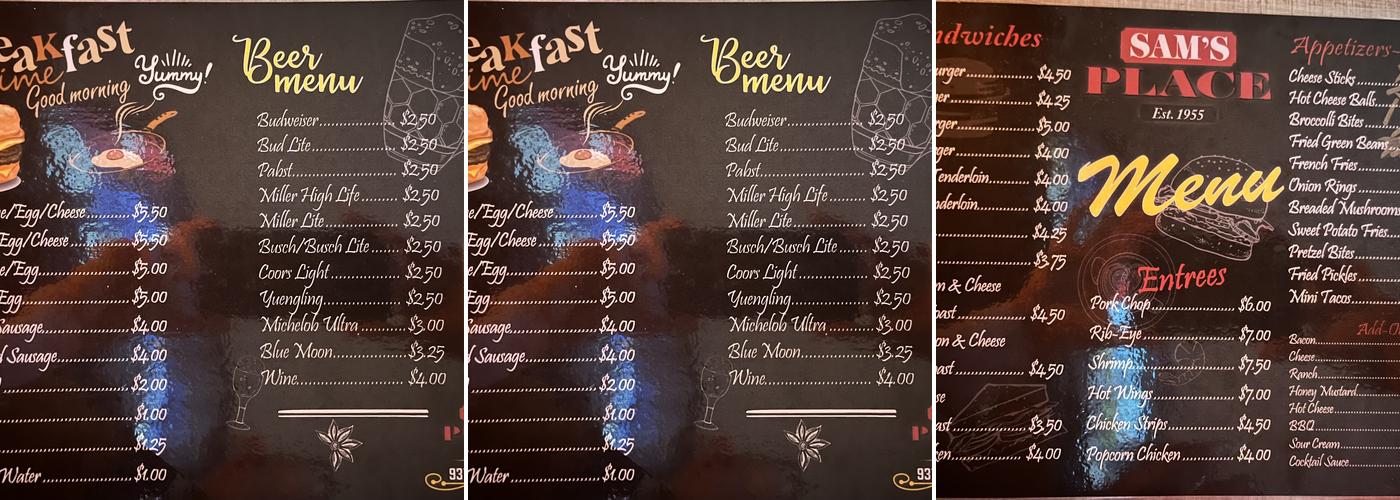 eakfast
ime
Good morning
Yummy!
e/Egg/Cheese..........$5.50
Egg/Cheese..........$5.50
e/Egg..........$5.00
Egg..........$5.00
Sausage..........$4.00
d Sausage..........$4.00
$2.00
$1.00
$1.25
Water..........$1.00
Beer
menu
Budweiser..........$2.50
Bud Lite..........$2.50
Pabst..........$2.50
Miller High Life..........$2.50
Miller Lite..........$2.50
Busch/Busch Lite..........$2.50
Coors Light..........$2.50
Yuengling..........$2.50
Michelob Ultra..........$3.00
Blue Moon..........$3.25
Wine..........$4.00
P
937
eakfast
ime
Good morning
Yummy!
e/Egg/Cheese..........$5.50
Egg/Cheese..........$5.50
e/Egg..........$5.00
Egg..........$5.00
Sausage..........$4.00
d Sausage..........$4.00
$2.00
$1.00
$1.25
Water..........$1.00
Beer
menu
Budweiser..........$2.50
Bud Lite..........$2.50
Pabst..........$2.50
Miller High Life..........$2.50
Miller Lite..........$2.50
Busch/Busch Lite..........$2.50
Coors Light..........$2.50
Yuengling..........$2.50
Michelob Ultra..........$3.00
Blue Moon..........$3.25
Wine..........$4.00
P
937
ndwiches
urger..........$4.50
er..........$4.25
ger..........$5.00
$4.00
Tenderloin..........$4.00
nderloin..........$4.00
$4.25
$3.75
n & Cheese
oast..........$4.50
on & Cheese
oast..........$4.50
se
ast..........$3.50
en..........$4.00
SAM'S
PLACE
Est. 1955
Menu
Entrees
Pork Chop..........$6.00
Rib-Eye..........$7.00
Shrimp..........$7.50
Hot Wings..........$7.00
Chicken Strips..........$4.50
Popcorn Chicken..........$4.00
Appetizers
Cheese Sticks..........
Hot Cheese Balls..........
Broccolli Bites..........
Fried Green Beans..........
French Fries..........
Onion Rings..........
Breaded Mushroom
Sweet Potato Fries..........
Pretzel Bites..........
Fried Pickles
Mini Tacos..........
Add-O
Bacon..........
Cheese..........
Ranch..........
Honey Mustard..........
Hot Cheese..........
BBQ..........
Sour Cream..........
Cocktail Sauce..........